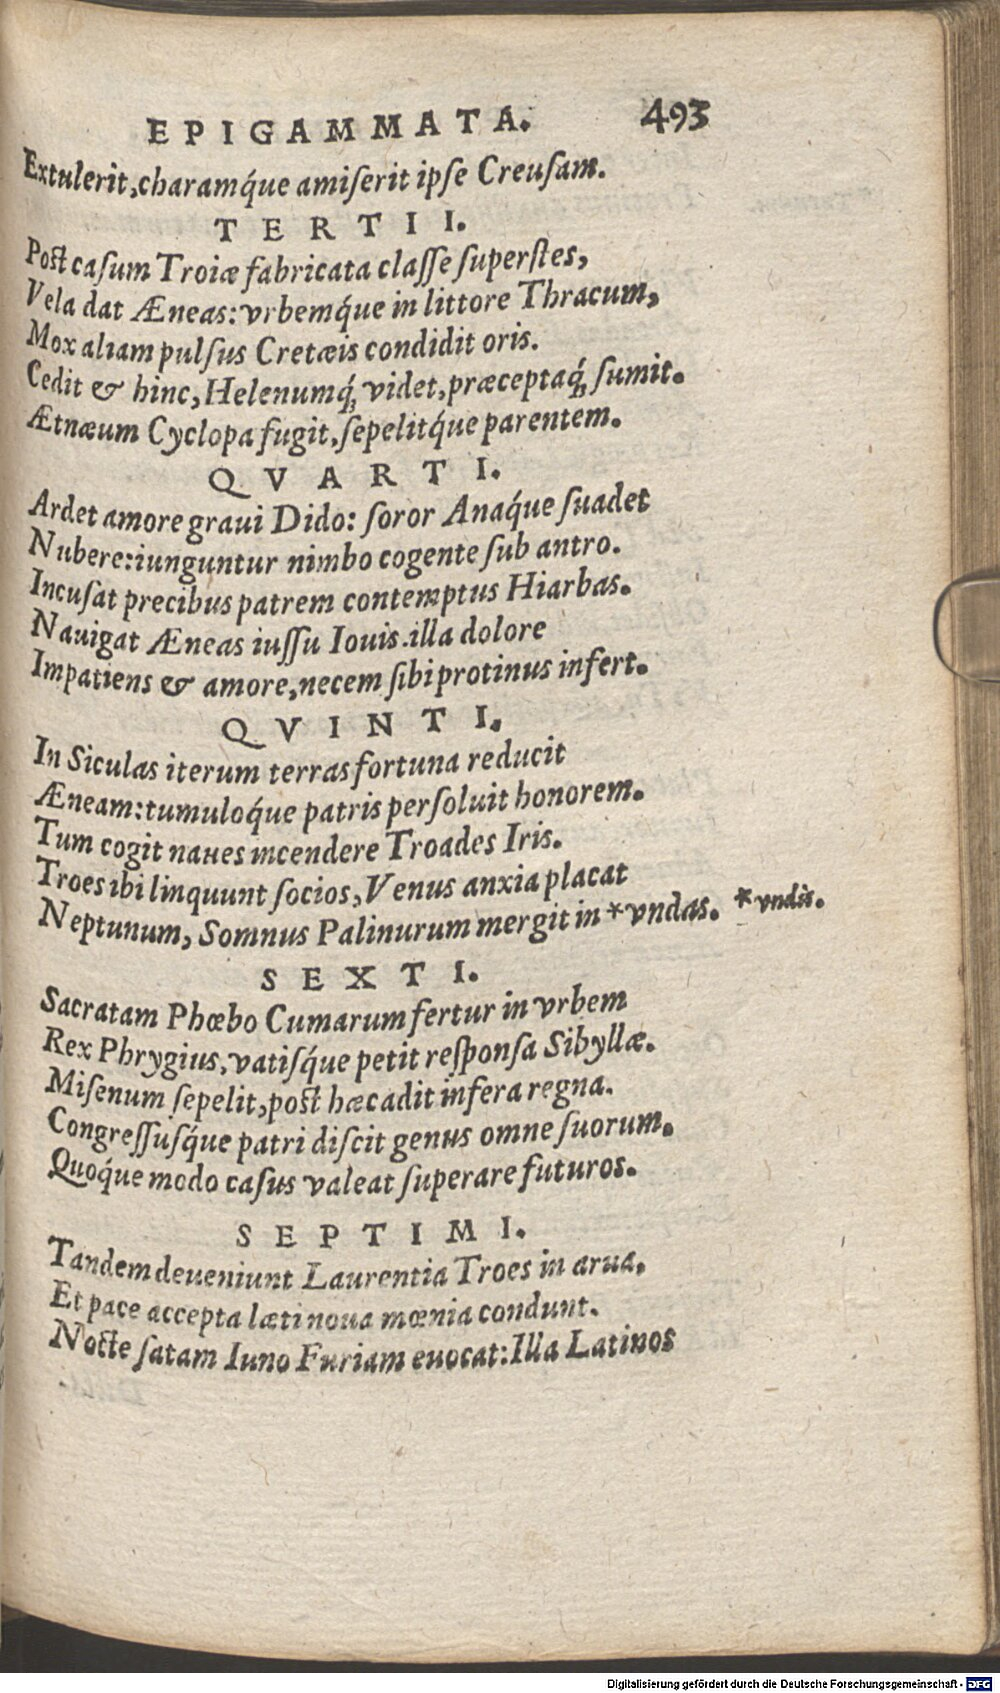 EPIGAMMATA. 493
Extulerit, charamq́ue amiſerit ipſe Creuſam.
TERTII.
Poſt caſum Troiæ fabricata claſſe ſuperſtes,
Vela dat Æneas: vrbemq́ue in littore Thracum,
Mox aliam pulſus Cretæis condidit oris.
Cedit & hinc, Helenumq́; videt, præceptaq́; ſumit.
Ætnæum Cyclopa fugit, ſepelitq́ue parentem.
QVARTI.
Ardet amore graui Dido: ſoror Anaq́ue ſuadet
Nubere: iunguntur nimbo cogente ſub antro.
Incuſat precibus patrem contemptus Hiarbas.
Nauigat Æneas iuſſu Iouis. illa dolore
Impatiens & amore, necem ſibi protinus infert.
QVINTI.
In Siculas iterum terras fortuna reducit
Æneam: tumuloq́ue patris perſoluit honorem.
Tum cogit naues incendere Troades Iris.
Troes ibi linquunt ſocios, Venus anxia placat
Neptunum, Somnus Palinurum mergit in * vndas. * vndis.
SEXTI.
Sacratam Phœbo Cumarum fertur in vrbem
Rex Phrygius, vatiſq́ue petit reſponſa Sibyllæ.
Miſenum ſepelit, poſt hæc adit infera regna.
Congreſſuſq́ue patri diſcit genus omne ſuorum.
Quoq́ue modo caſus valeat ſuperare futuros.
SEPTIMI.
Tandem deueniunt Laurentia Troes in arua.
Et pace accepta læti noua mœnia condunt.
Nocte ſatam Iuno Furiam euocat: Illa Latinos
Digitalisierung gefördert durch die Deutsche Forschungsgemeinschaft - DFG